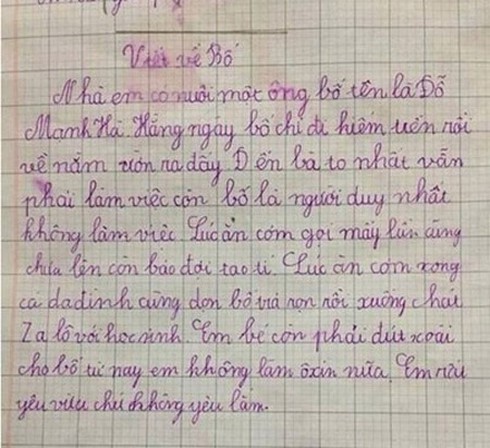 Viết về Bố
Nhà em có nuôi một ông bố tên là Đỗ
Mạnh Hà. Hằng ngày bố chỉ đi kiếm tiền rồi
về nằm ườn ra đấy Đến bà to nhất vẫn
phải làm việc còn bố là người duy nhất
không làm việc. Lúc ăn cơm gọi mấy lần cũng
chưa lên còn bảo đợi tao tí. Lúc ăn cơm xong
cả da đình cùng dọn bố trả rọn rồi xuống chát
Za lô với học sinh. Em bé còn phải đút xoài
cho bố từ nay em không làm ôxin nữa. Em
yêu vừa chứ không yêu lắm.